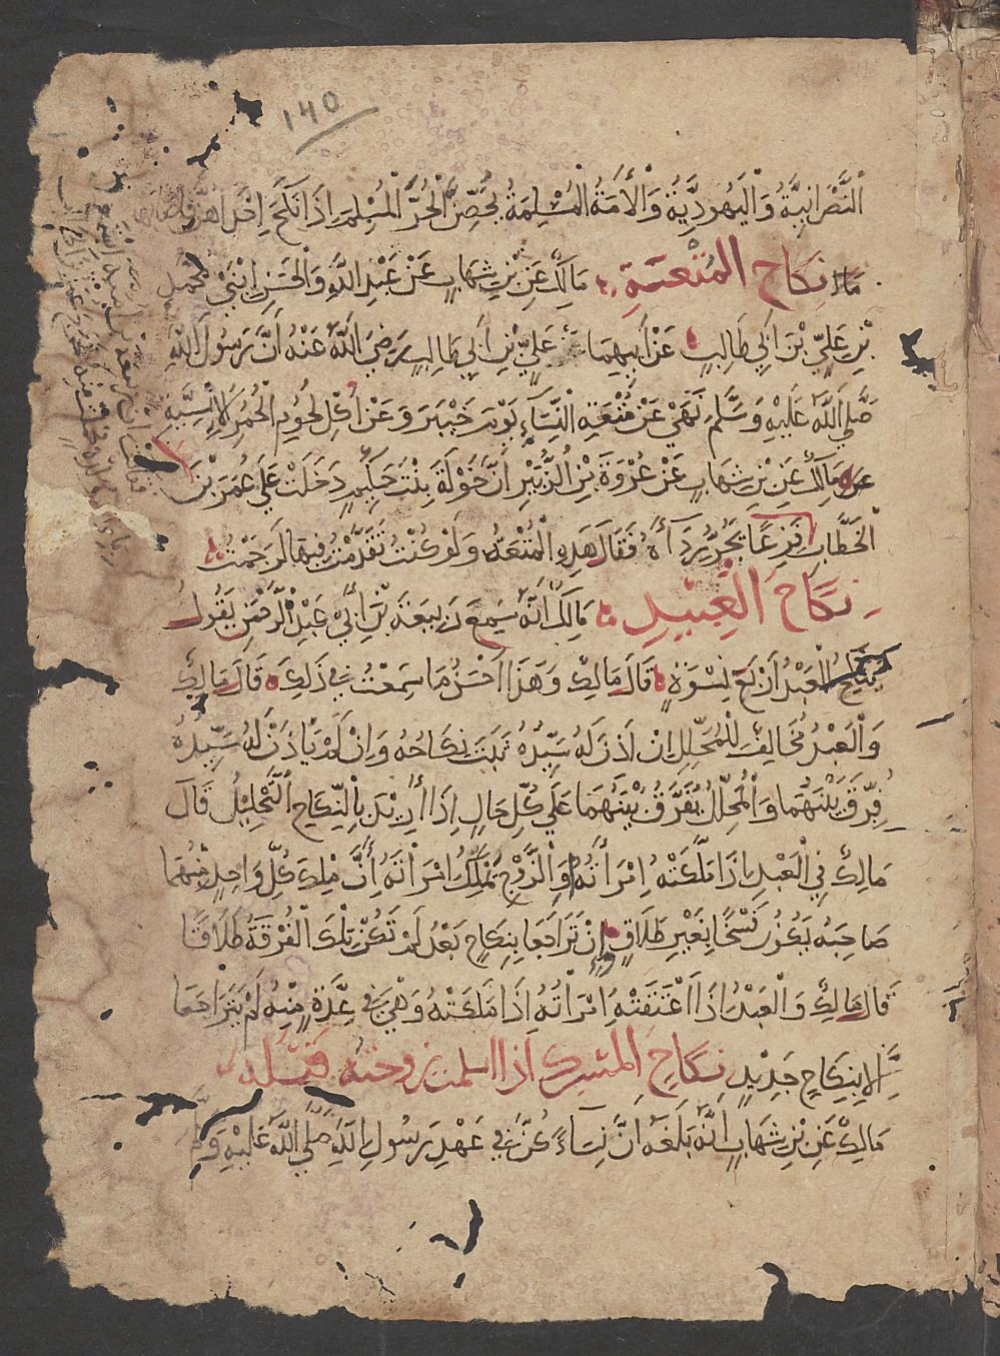 ١٤٥
النَّصْرَانِيَّةُ وَالْيَهُودِيَّةُ وَالْأَمَةُ الْمُسْلِمَةُ يُحْصِنَّ الْحُرَّ الْمُسْلِمَ إِذَا نَكَحَ إِحْدَاهُنَّ فَأَصَابَهَا
نِكَاحِ الْمُتْعَةِ مَالِكٌ عَنِ ابْنِ شِهَابٍ عَنْ عَبْدِ اللَّهِ وَالْحَسَنِ ابْنَيْ مُحَمَّدِ
بْنِ عَلِيِّ بْنِ أَبِي طَالِبٍ عَنْ أَبِيهِمَا عَنْ عَلِيِّ بْنِ أَبِي طَالِبٍ رَضِيَ اللَّهُ عَنْهُ أَنَّ رَسُولَ اللَّهِ
صَلَّى اللَّهُ عَلَيْهِ وَسَلَّمَ نَهَى عَنْ مُتْعَةِ النِّسَاءِ يَوْمَ خَيْبَرَ وَعَنْ أَكْلِ لُحُومِ الْحُمُرِ الْإِنْسِيَّةِ
مَالِكٌ عَنِ ابْنِ شِهَابٍ عَنْ عُرْوَةَ بْنِ الزُّبَيْرِ أَنَّ خَوْلَةَ بِنْتَ حَكِيمٍ دَخَلَتْ عَلَى عُمَرَ بْنِ
الْخَطَّابِ فَزِعًا يَجُرُّ رِدَآءَهُ فَقَالَ هَذِهِ الْمُتْعَةُ وَلَوْ كُنْتُ تَقَدَّمْتُ فِيهَا لَرَجَمْتُ
نِكَاحُ الْعَبِيدِ مَالِكٌ أَنَّهُ سَمِعَ رَبِيعَةَ بْنَ أَبِي عَبْدِ الرَّحْمَنِ يَقُولُ
يَنْكِحُ الْعَبْدُ أَرْبَعَ نِسْوَةٍ قَالَ مَالِكٌ وَهَذَا أَحْسَنُ مَا سَمِعْتُ فِي ذَلِكَ قَالَ مَالِكٌ
وَالْعَبْدُ مُخَالِفٌ لِلْمُحَلِّلِ إِنْ أَذِنَ لَهُ سَيِّدُهُ ثَبَتَ نِكَاحُهُ وَإِنْ لَمْ يَأْذَنْ لَهُ سَيِّدُهُ
فُرِّقَ بَيْنَهُمَا وَالْمُحَلِّلُ يُفَرَّقُ بَيْنَهُمَا عَلَى كُلِّ حَالٍ إِذَا أُرِيدَ بِالنِّكَاحِ التَّحْلِيلُ قَالَ
مَالِكٌ فِي الْعَبْدِ إِذَا مَلَكَتْهُ امْرَأَتُهُ أَوِ الزَّوْجِ يَمْلِكُ امْرَأَتَهُ أَنَّ مِلْكَ كُلِّ وَاحِدٍ مِنْهُمَا
صَاحِبَهُ يَكُونُ فَسْخًا بِغَيْرِ طَلَاقٍ وَإِنْ تَرَاجَعَا بِنِكَاحٍ بَعْدُ لَمْ تَكُنْ تِلْكَ الْفُرْقَةُ طَلَاقًا
قَالَ مَالِكٌ وَالْعَبْدُ إِذَا أَعْتَقَتْهُ امْرَأَتُهُ إِذَا مَلَكَتْهُ وَهْيَ فِي عِدَّةٍ مِنْهُ لَمْ يَتَرَاجَعَا
إِلَّا بِنِكَاحٍ جَدِيدٍ نِكَاحُ الْمُشْرِكِ إِذَا أَسْلَمَتْ زَوْجَتُهُ قَبْلَهُ
مَالِكٌ عَنِ ابْنِ شِهَابٍ أَنَّهُ بَلَغَهُ أَنَّ نِسَاءً كُنَّ فِي عَهْدِ رَسُولِ اللَّهِ صَلَّى اللَّهُ عَلَيْهِ وَسَلَّمَ